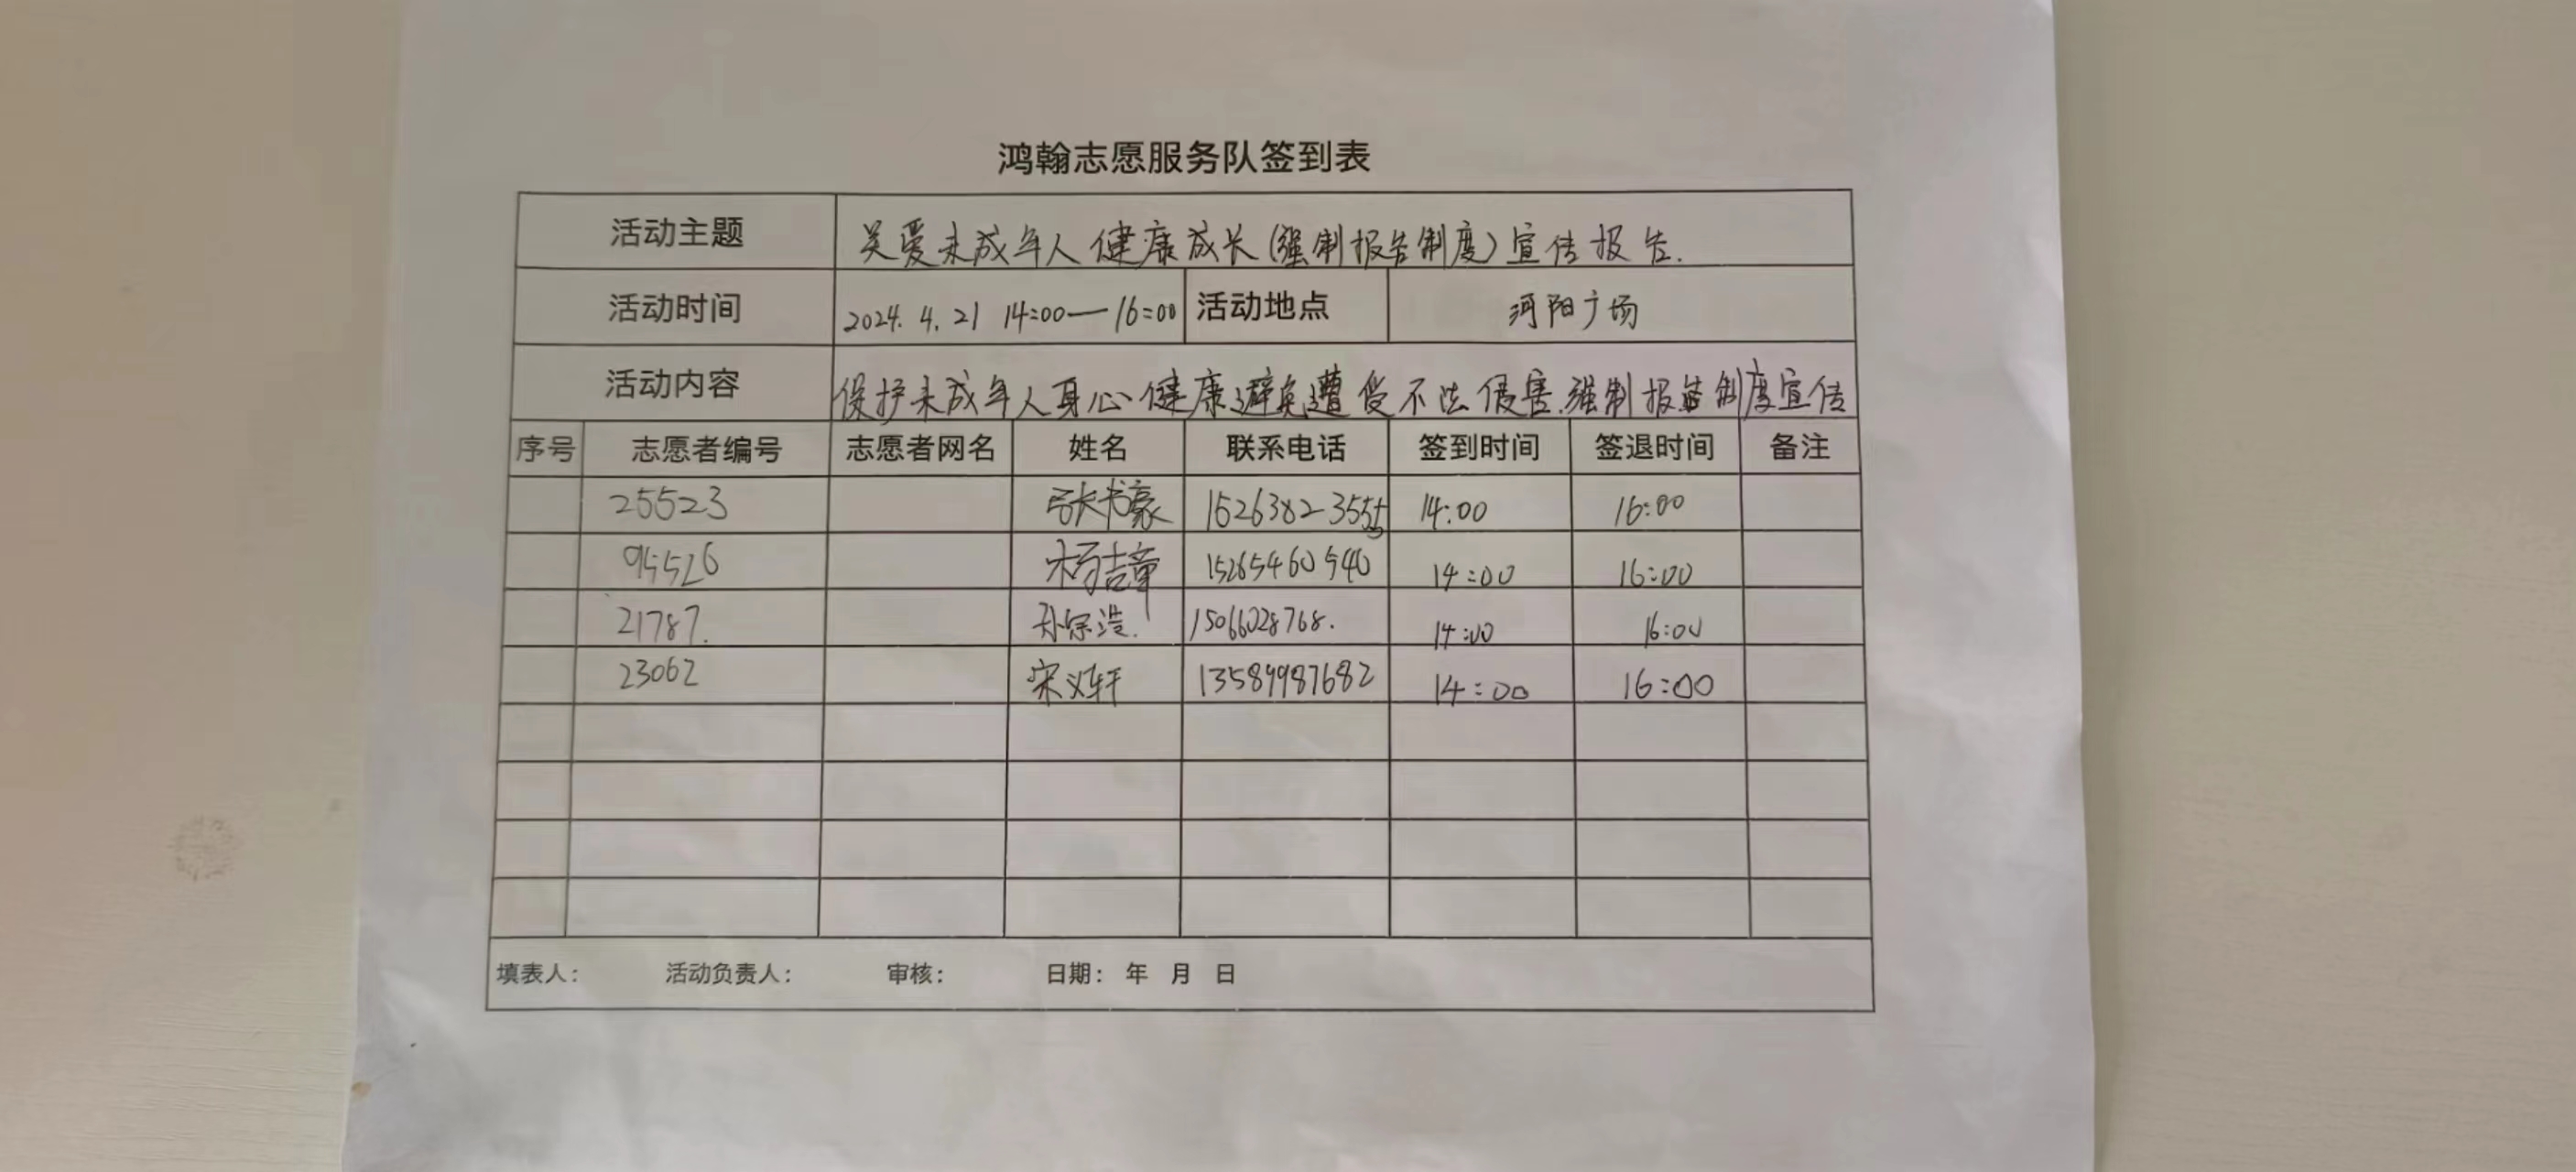 鸿翰志愿服务队签到表
活动主题 关爱未成年人健康成长(强制报告制度)宣传报告.
活动时间 2024.4.21 14:00—16:00 活动地点 河阳广场
活动内容 保护未成年人身心健康避免遭受不法侵害.强制报告制度宣传
序号 志愿者编号 志愿者网名 姓名 联系电话 签到时间 签退时间 备注
25523 张书豪 15263823555 14:00 16:00
95526 杨吉章 15265460540 14:00 16:00
21787. 孙宗浩. 15066028768. 14:00 16:00
23062 宋义轩 13589987682 14:00 16:00
填表人： 活动负责人： 审核： 日期： 年 月 日